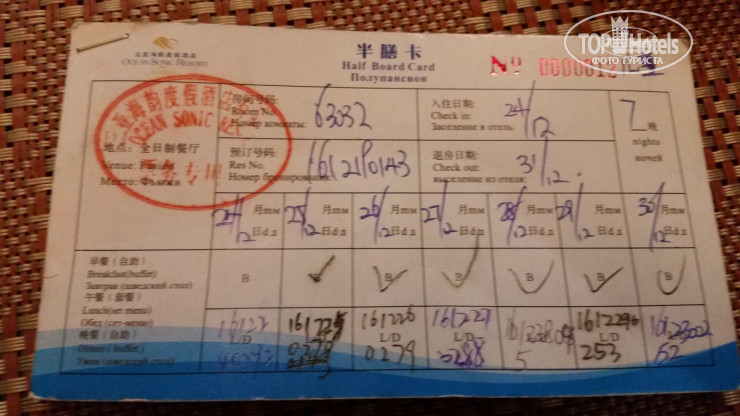 三亚海韵度假酒店
OCEAN SONIC RESORT
半膳卡
Half Board Card
Полупансион
TOP Hotels
ФОТО ТУРИСТА
No
海韵度假酒
OCEAN SONIC
房间号码:
Room No.
Номер комнаты:
63032
入住日期:
Check in:
Заселение в отель:
24/12
7 晚
nights
ночей
地点: 全日制餐厅
Venue:
Место:
预订号码:
Res No.
Номер бронирования:
退房日期:
Check out:
выселение из отеля:
31/12.
24/12 月m.м 日d.д
25/12 月m.м 日d.д
26/12 月m.м 日d.д
27/12 月m.м 日d.д
28/12 月m.м 日d.д
29/12 月m.м 日d.д
30/12 月m.м 日d.д
早餐(自助)
Breakfast(buffet)
Завтрак (шведский стол)
B B B B B B B
午餐(套餐)
Lunch(set menu)
Обед (сет-меню)
晚餐(自助)
Dinner(buffet)
Ужин (шведский стол)
161226
161227
L/D L/D L/D L/D L/D L/D
0279
5288
5
253
52